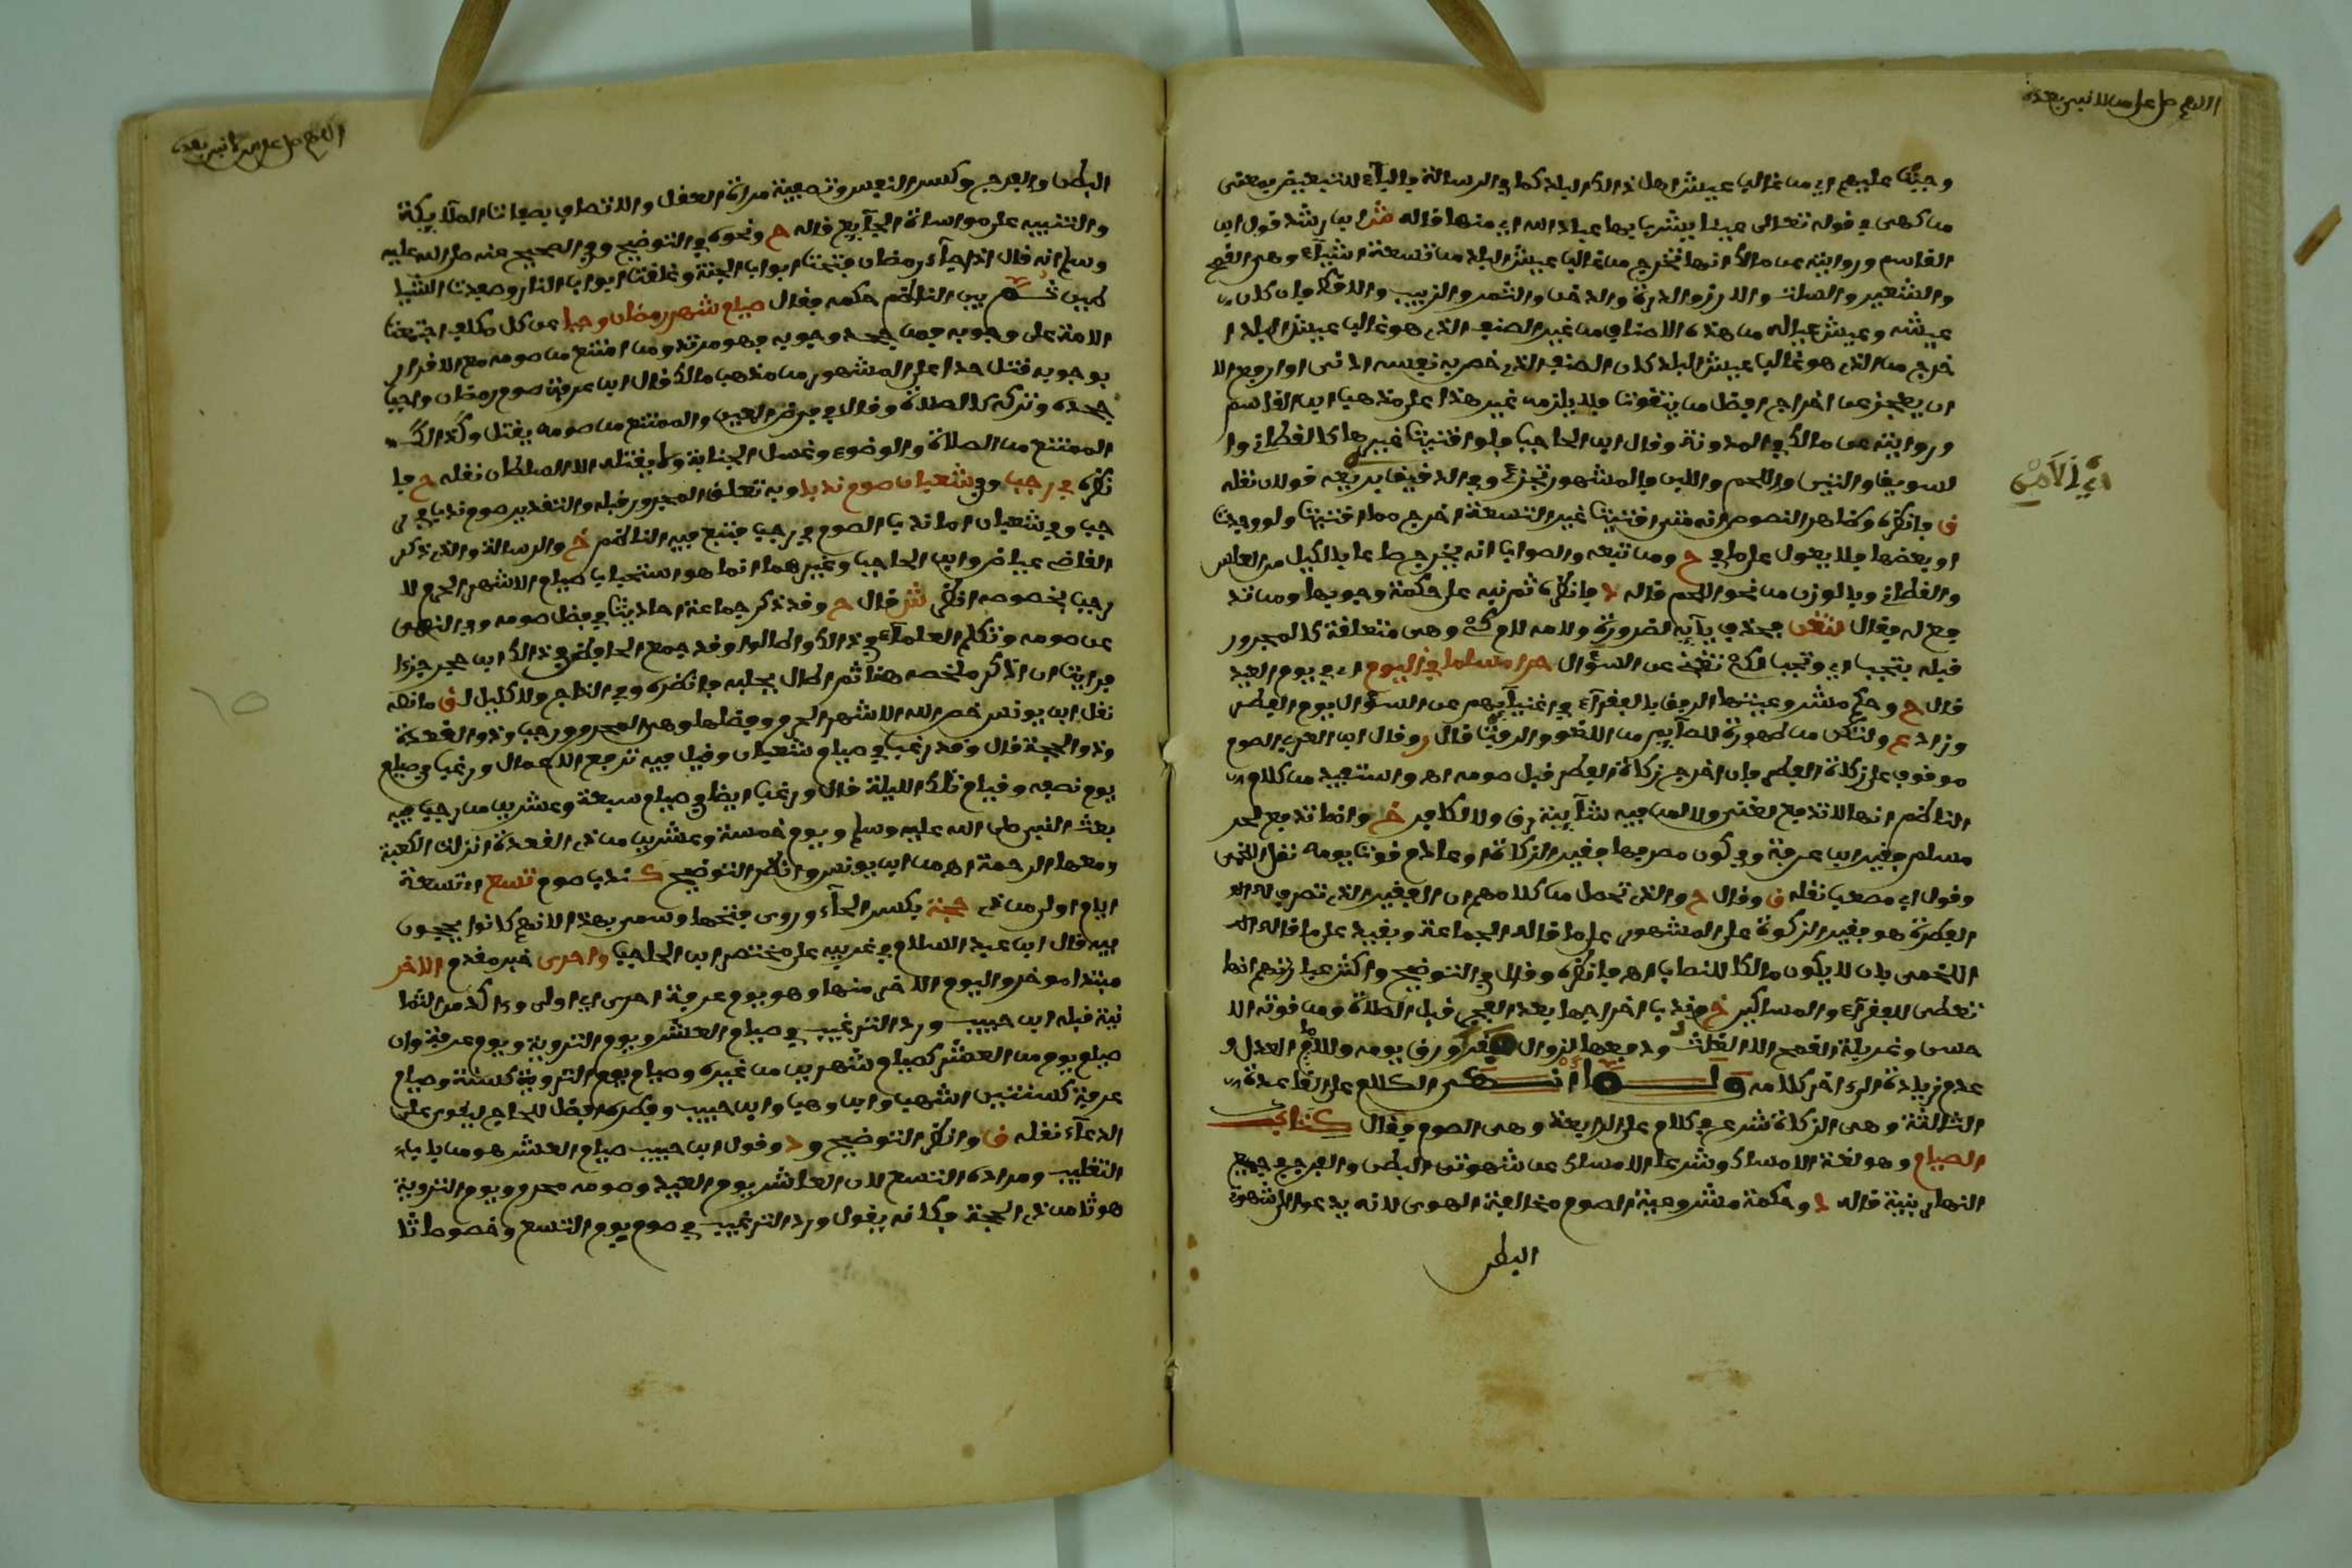 اللهم صل على من لا نبي بعده
وجبت عليهم اي من غالب عيش اهل ذالك البلد كما في الرسالة والباء للتبعيض بمعنى
من كهى في قوله تعالى عينا يشرب بها عباد الله اي منها قاله ابن رشد قول ابن
القاسم وروايته عن مالك انها تخرج من غالب عيش البلد من تسعة اشياء وهي القمح
والشعير والسلت والارز والذرة والدخن والتمر والزبيب والاقط فان كان
عيشه وعيش عياله من هذه الاصناف من غير الصنف الذي هو غالب عيش البلد ا
خرج من الذي هو غالب عيش البلد كان الصنف الذي خص به نفسه ادنى او ارفع الا
ان يعجز عن اخراج افضل من يتقوت فلا يلزمه غير هذا على مذهب ابن القاسم
وروايته عن مالك في المدونة وقال ابن الحاجب فلو اقتيت غيرها كالقطاني وا
لسويق والتين واللحم واللبن فالمشهور تجزئ وفي الدقيق بريعه قولان نقله
اي الامن
ق وانظره وظاهر النصوص انه متى اقتيت غير التسعة اخرج مما اقتيت ولو وجدت
او بعضها فلا يعول على ما في ح ومن تبعه والصواب انه يخرج صاعا بالكيل من العلس
والقطاني وبالوزن من نحو اللحم قاله د وانظره ثم نبه على حكمة وجوبها ومن تد
فع له فقال لتغن بحذف يائه لضرورة ولامه لام كي وهي متعلقة كالمجرور
قبله بتجب اي وتجب لكي تغني عن السؤال حرا مسلما في اليوم اي في يوم العيد
قال ح وحكم مشروعيتها الرفق بالفقراء في اغنيائهم عن السؤال يوم الفطر
وزاد ع ولتكن من طهورة للصائم من اللغو والرفث قال ر وقال ابن العربي الصوم
موقوف على زكاة الفطر فان اخرج زكاة الفطر قبل صومه اهـ واستفيد من كلام
الناظم انها لا تدفع لغني ولا لمن فيه شائبة رق ولا لكافر خ وانما تدفع لحر
مسلم فقير ابن عرفة وفي كون مصرفها فقير الزكاة او عادم قوت يومه نقل اللخمي
وقول ابي مصعب نقله ق وقال ح والذي تحصل من كلامهم ان الفقير الذي تصرف له
الفطرة هو فقير الزكوة على المشهور على ما قاله الجماعة ويقيد على ما قاله
اللخمي بان لا يكون مالكا للنصاب اهـ وانظره وقال في التوضيح واكثر عباراتهم انما
تعطى للفقراء والمساكين خ وندب اخراجها بعد الفجر قبل الصلاة ومن قوته الا
حسن وغربلة القمح الا الغلث ودفعها لزوال فقر ورق يومه وللامام العدل و
عدم زيادة الى اخر كلامه ولما انتهى الكلام على القاعدة
الثالثة وهي الزكاة شرع في كلام على الرابعة وهي الصوم فقال كتاب
الصيام وهو لغة الامساك وشرعا الامساك عن شهوتي البطن والفرج في جميع
النهار بنية قاله د وحكمة مشروعية الصوم مخالفة الهوى لانه يدعو الى شهوة
البطن
اللهم صل على من لا نبي بعده
البطن والفرج وكسر النفس وتصفية مراة العقل والاتصاف بصفات الملائكة
والتنبيه على مواساة الجائع قاله ح ونحوه في التوضيح وفي الصحيح عنه صلى الله عليه
وسلم انه قال اذا جاء رمضان فتحت ابواب الجنة وغلقت ابواب النار وصفدت الشيا
طين ثم بين الناظم حكمه فقال صيام شهر رمضان وجبا عن كل مكلف اجتمعت
الامة على وجوبه فمن جحد وجوبه فهو مرتد ومن امتنع من صومه مع الاقرار
بوجوبه قتل حدا على المشهور من مذهب مالك قال ابن عرفة صوم رمضان واجب
جحده وتركه كالصلاة وقالا في فرض العين والممتنع من صومه يقتل وكذالك
الممتنع من الصلاة والوضوء وغسل الجنابة ولا يقتله الا السلطان نقله ح فا
نظره في رجب وفي شعبان صوم ندبا وبه تعلق المجرور قبله والتقدير صوم ندب في ر
جب وفي شعبان اما ندب الصوم في رجب فتبع فيه الناظم خ والرسالة والذي ذكر
القاضي عياض وابن الحاجب وغيرهما انما هو استحباب صيام الاشهر الحرم لا
رجب بخصوصه انظر شر قال ح وقد ذكر جماعة احاديث في فضل صومه وفي النهي
عن صومه وتكلم العلماء في ذالك واطالوا وقد جمع الحافظ في ذالك ابن حجر جزءا
فرايت ان اذكر ملخصه هنا ثم اطال بجلبه وانظره وفي التاج والاكليل لق ما نصه
نقل ابن يونس خص الله الاشهر الحرم وفضلها وهي المحرم ورجب وذو القعدة
وذو الحجة قال وقد رغب في صيام شعبان وقيل فيه ترفع الاعمال ورغب في صيام
يوم نصفه وقيام تلك الليلة قال ورغب ايضا في صيام سبعة وعشرين من رجب فيه
بعث النبي صلى الله عليه وسلم ويوم خمسة وعشرين من ذي القعدة انزلت الكعبة
ومعها الرحمة اهـ من ابن يونس وانظر التوضيح كـ ندب صوم تسع اي تسعة
ايام اول من ذي حجة بكسر الحاء وروي فتحها وسمي بهذا لانهم كانوا يحجون
فيه قال ابن عبد السلام في غريبه على مختصر ابن الحاجب واحرى خبر مقدم الاخر
مبتدا موخر واليوم الاخر منها وهو يوم عرفة احرى اي اولى واكد من الثما
نية قبله ابن حبيب ورد الترغيب في صيام العشر ويوم التروية ويوم عرفة وان
صيام يوم من العشر كصيام شهرين من غيره وصيام يوم التروية كسنة وصيام
عرفة كسنتين اشهب وابن وهب وابن حبيب وفطره افضل للحاج ليقوى على
الدعاء نقله ق وانظر التوضيح و د وقول ابن حبيب صيام العشر هو من باب
التغليب ومراده التسع لان العاشر يوم العيد وصومه محرم ويوم التروية
هو ثامن ذي الحجة فكانه يقول ورد الترغيب في صوم يوم التسع وخصوصا ثا